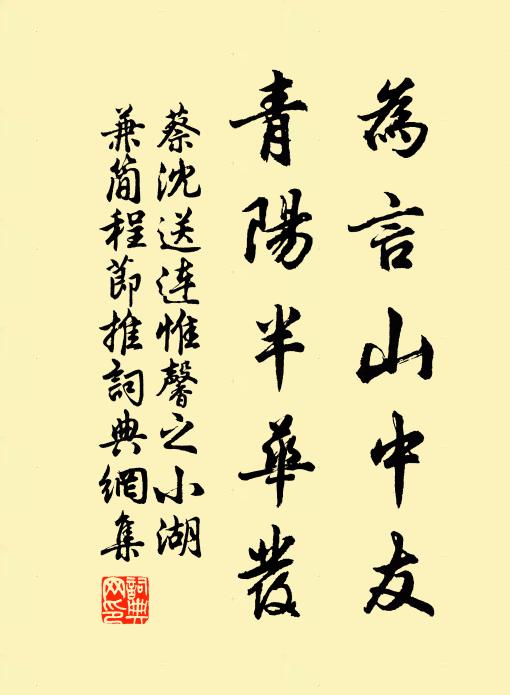 為言山中友
青陽半華發
蔡沈送連惟馨之小湖
兼簡程節推詞典網集
詞典網印